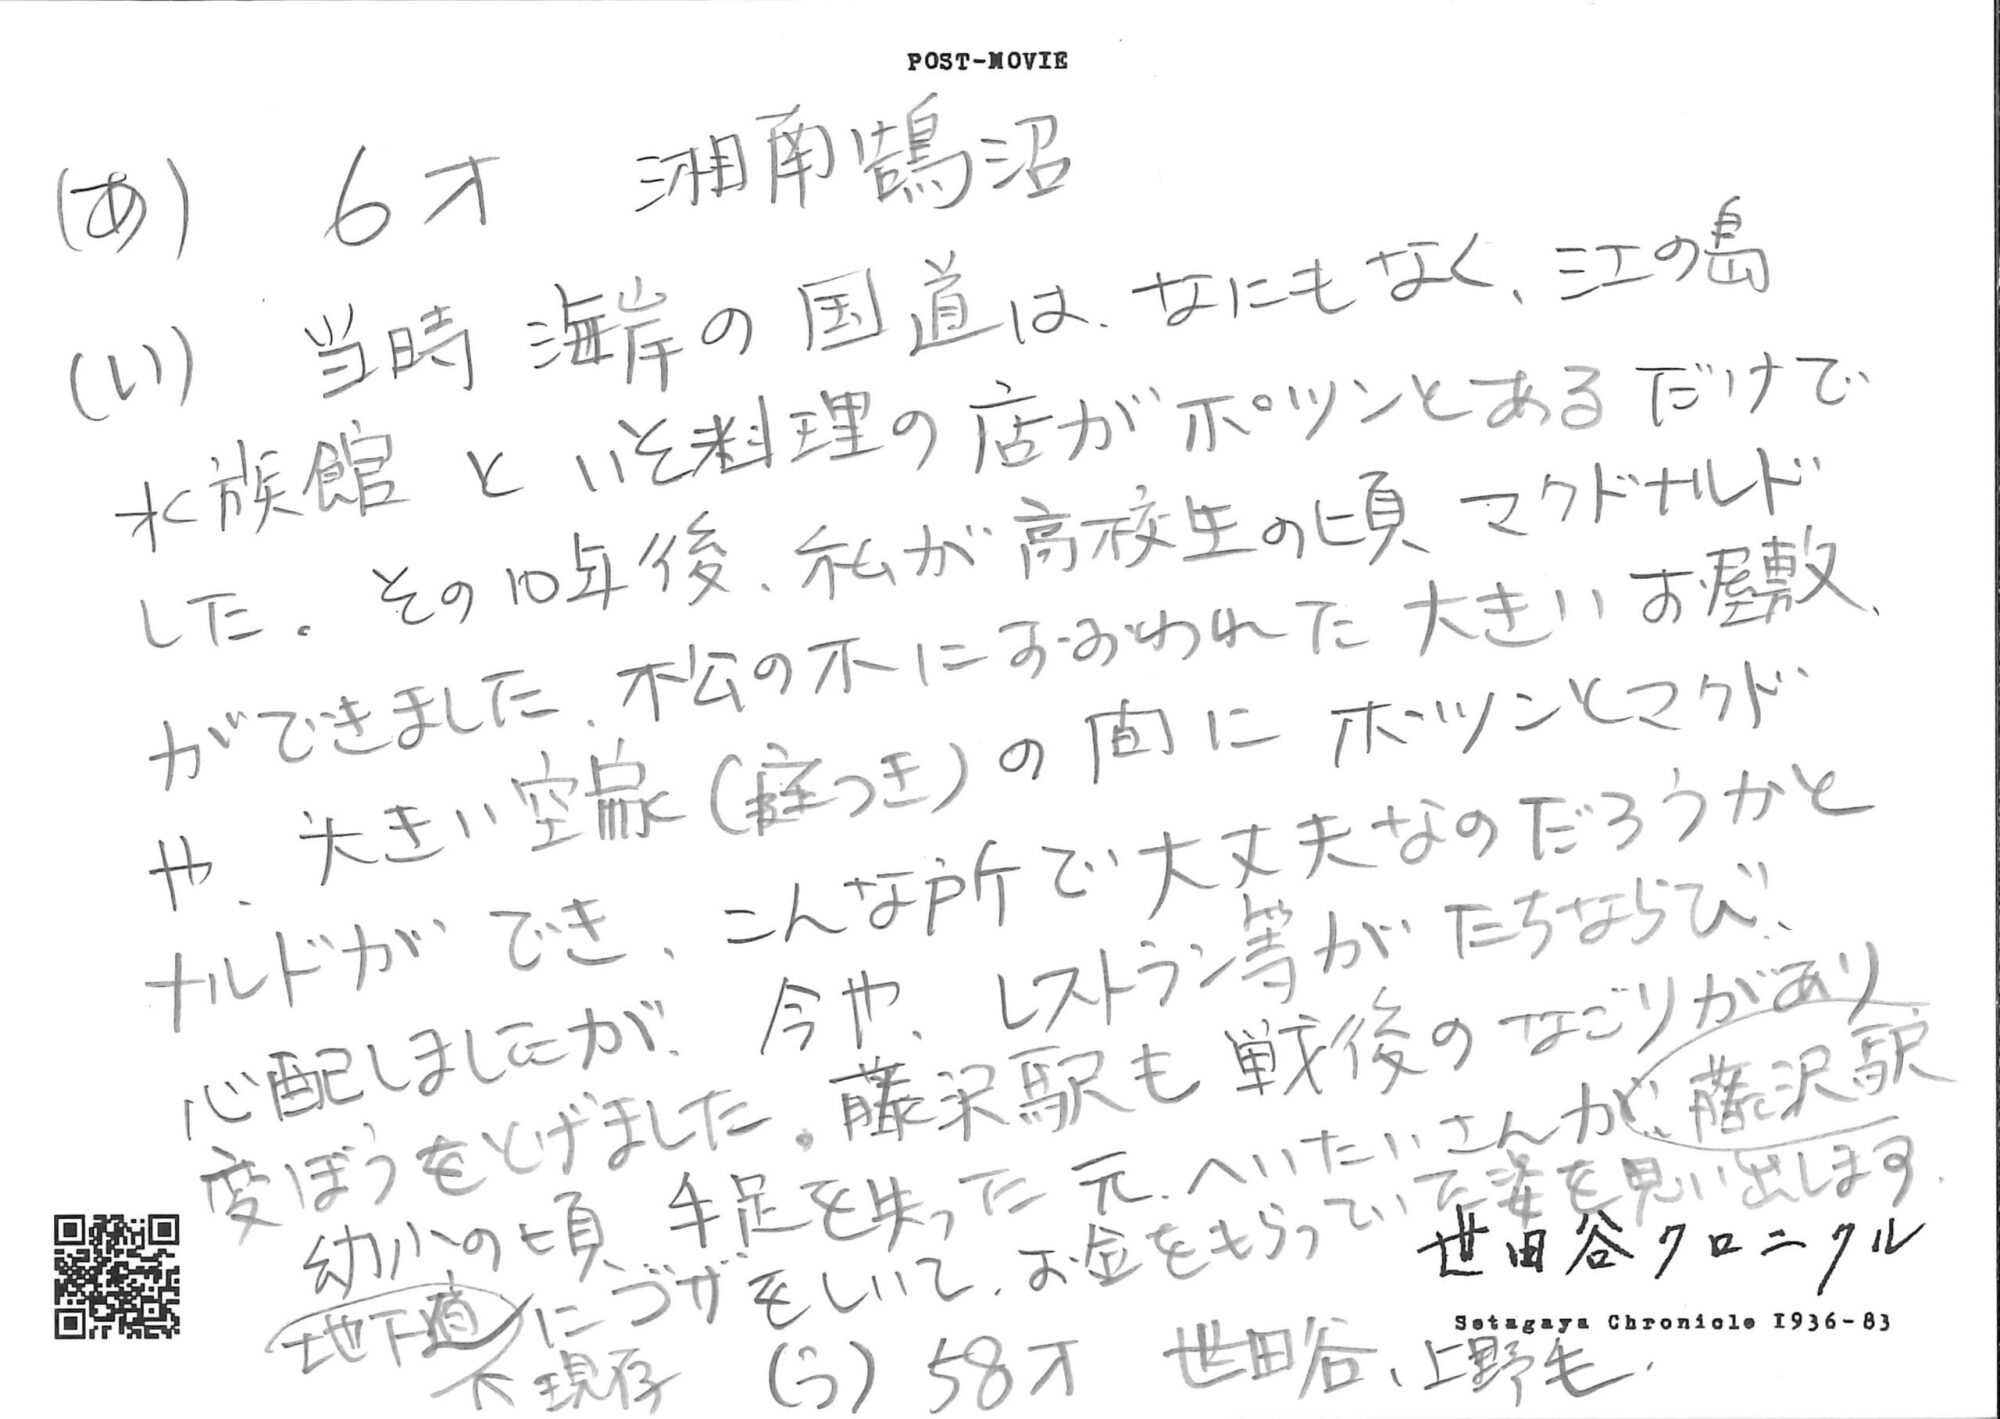 POST-MOVIE
(あ) 6才 湘南鵠沼
(い) 当時 海岸の国道は、なにもなく、江の島
水族館 と いそ料理の店がポツンとあるだけで
した。その10年後、私が高校生の頃、マクドナルド
ができました、松の木におおわれた大きいお屋敷、
や、大きい空家(庭つき)の間にポツンとマクド
ナルドができ、こんな所で大丈夫なのだろうかと
心配しましたが、今や、レストラン等がたちならび、
変ぼうをとげました。藤沢駅も戦後のなごりがあり
幼少の頃、手足を失った元、へいたいさんが、藤沢駅
地下道にゴザをしいて、お金をもらっていた姿を思い出します。
現存 (う) 58才 世田谷、上野毛、
世田谷クロニクル
Setagaya Chronicle 1936-83